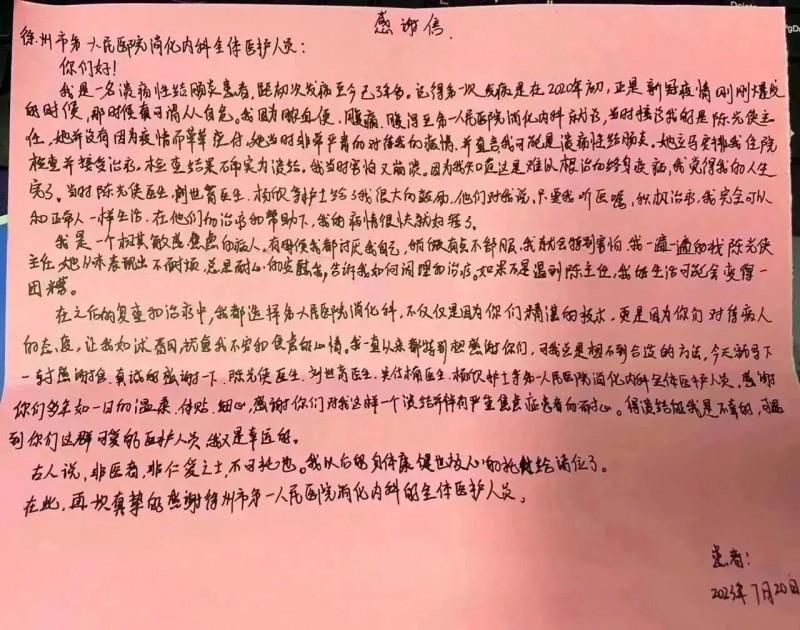 感谢信
徐州市第一人民医院消化内科全体医护人员：
你们好！
我是一名溃疡性结肠炎患者，距初次发病至今已3年多。记得第一次发病是在2020年初，正是新冠疫情刚刚爆发
的时候，那时候真可谓人人自危。我因脓血便、腹痛、腹泻至第一人民医院消化内科就诊，当时接诊我的是陈光侠主
任，她并没有因为疫情而草草应付，她当时非常严肃的对待我的病情，并直言我可能是溃疡性结肠炎。她立马安排我住院
检查并接受治疗。检查结果石确实为溃结。我当时害怕又崩溃。因为我知道这是难以根治的终身疾病，我觉得我的人生
完了。当时陈光侠医生、刘世育医生、杨欣等护士给了我很大的鼓励，他们对我说，只要我听医嘱，积极治疗，我完全可以
和正常人一样生活。在他们的治疗和帮助下，我的病情很快就好转了。
我是一个极其敏感焦虑的病人。有时候我都讨厌我自己，稍微有点不舒服，我就会特别害怕。我一遍一遍的找陈光侠
主任，她从未表现出不耐烦，总是耐心的安慰我，告诉我如何调理和治疗。如果不是遇到陈主任，我的生活可能会变得一
团糟。
在之后的复查和治疗中，我都选择第一人民医院消化科，不仅仅是因为你们精湛的技术，更是因为你们对待病人
的态度，让我如沐春风，抚慰我不安和焦虑的心情。我一直以来都特别想感谢你们，可我总是想不到合适的方法，今天就写下
一封感谢信，真诚的感谢一下，陈光侠医生、刘世育医生、吴仕楠医生、杨欣护士等第一人民医院消化内科全体医护人员，感谢
你们多年如一日的温柔、体贴、细心，感谢你们对我这样一个溃结并伴有严重焦虑症患者的耐心。得溃结的我是不幸的，可遇
到你们这群可爱的医护人员，我又是幸运的。
古人说，非医者，非仁爱之士，不可托也。我以后的身体康健也放心的托付给诸位了。
在此，再次真挚的感谢徐州市第一人民医院消化内科的全体医护人员。
患者：
2023年7月20日